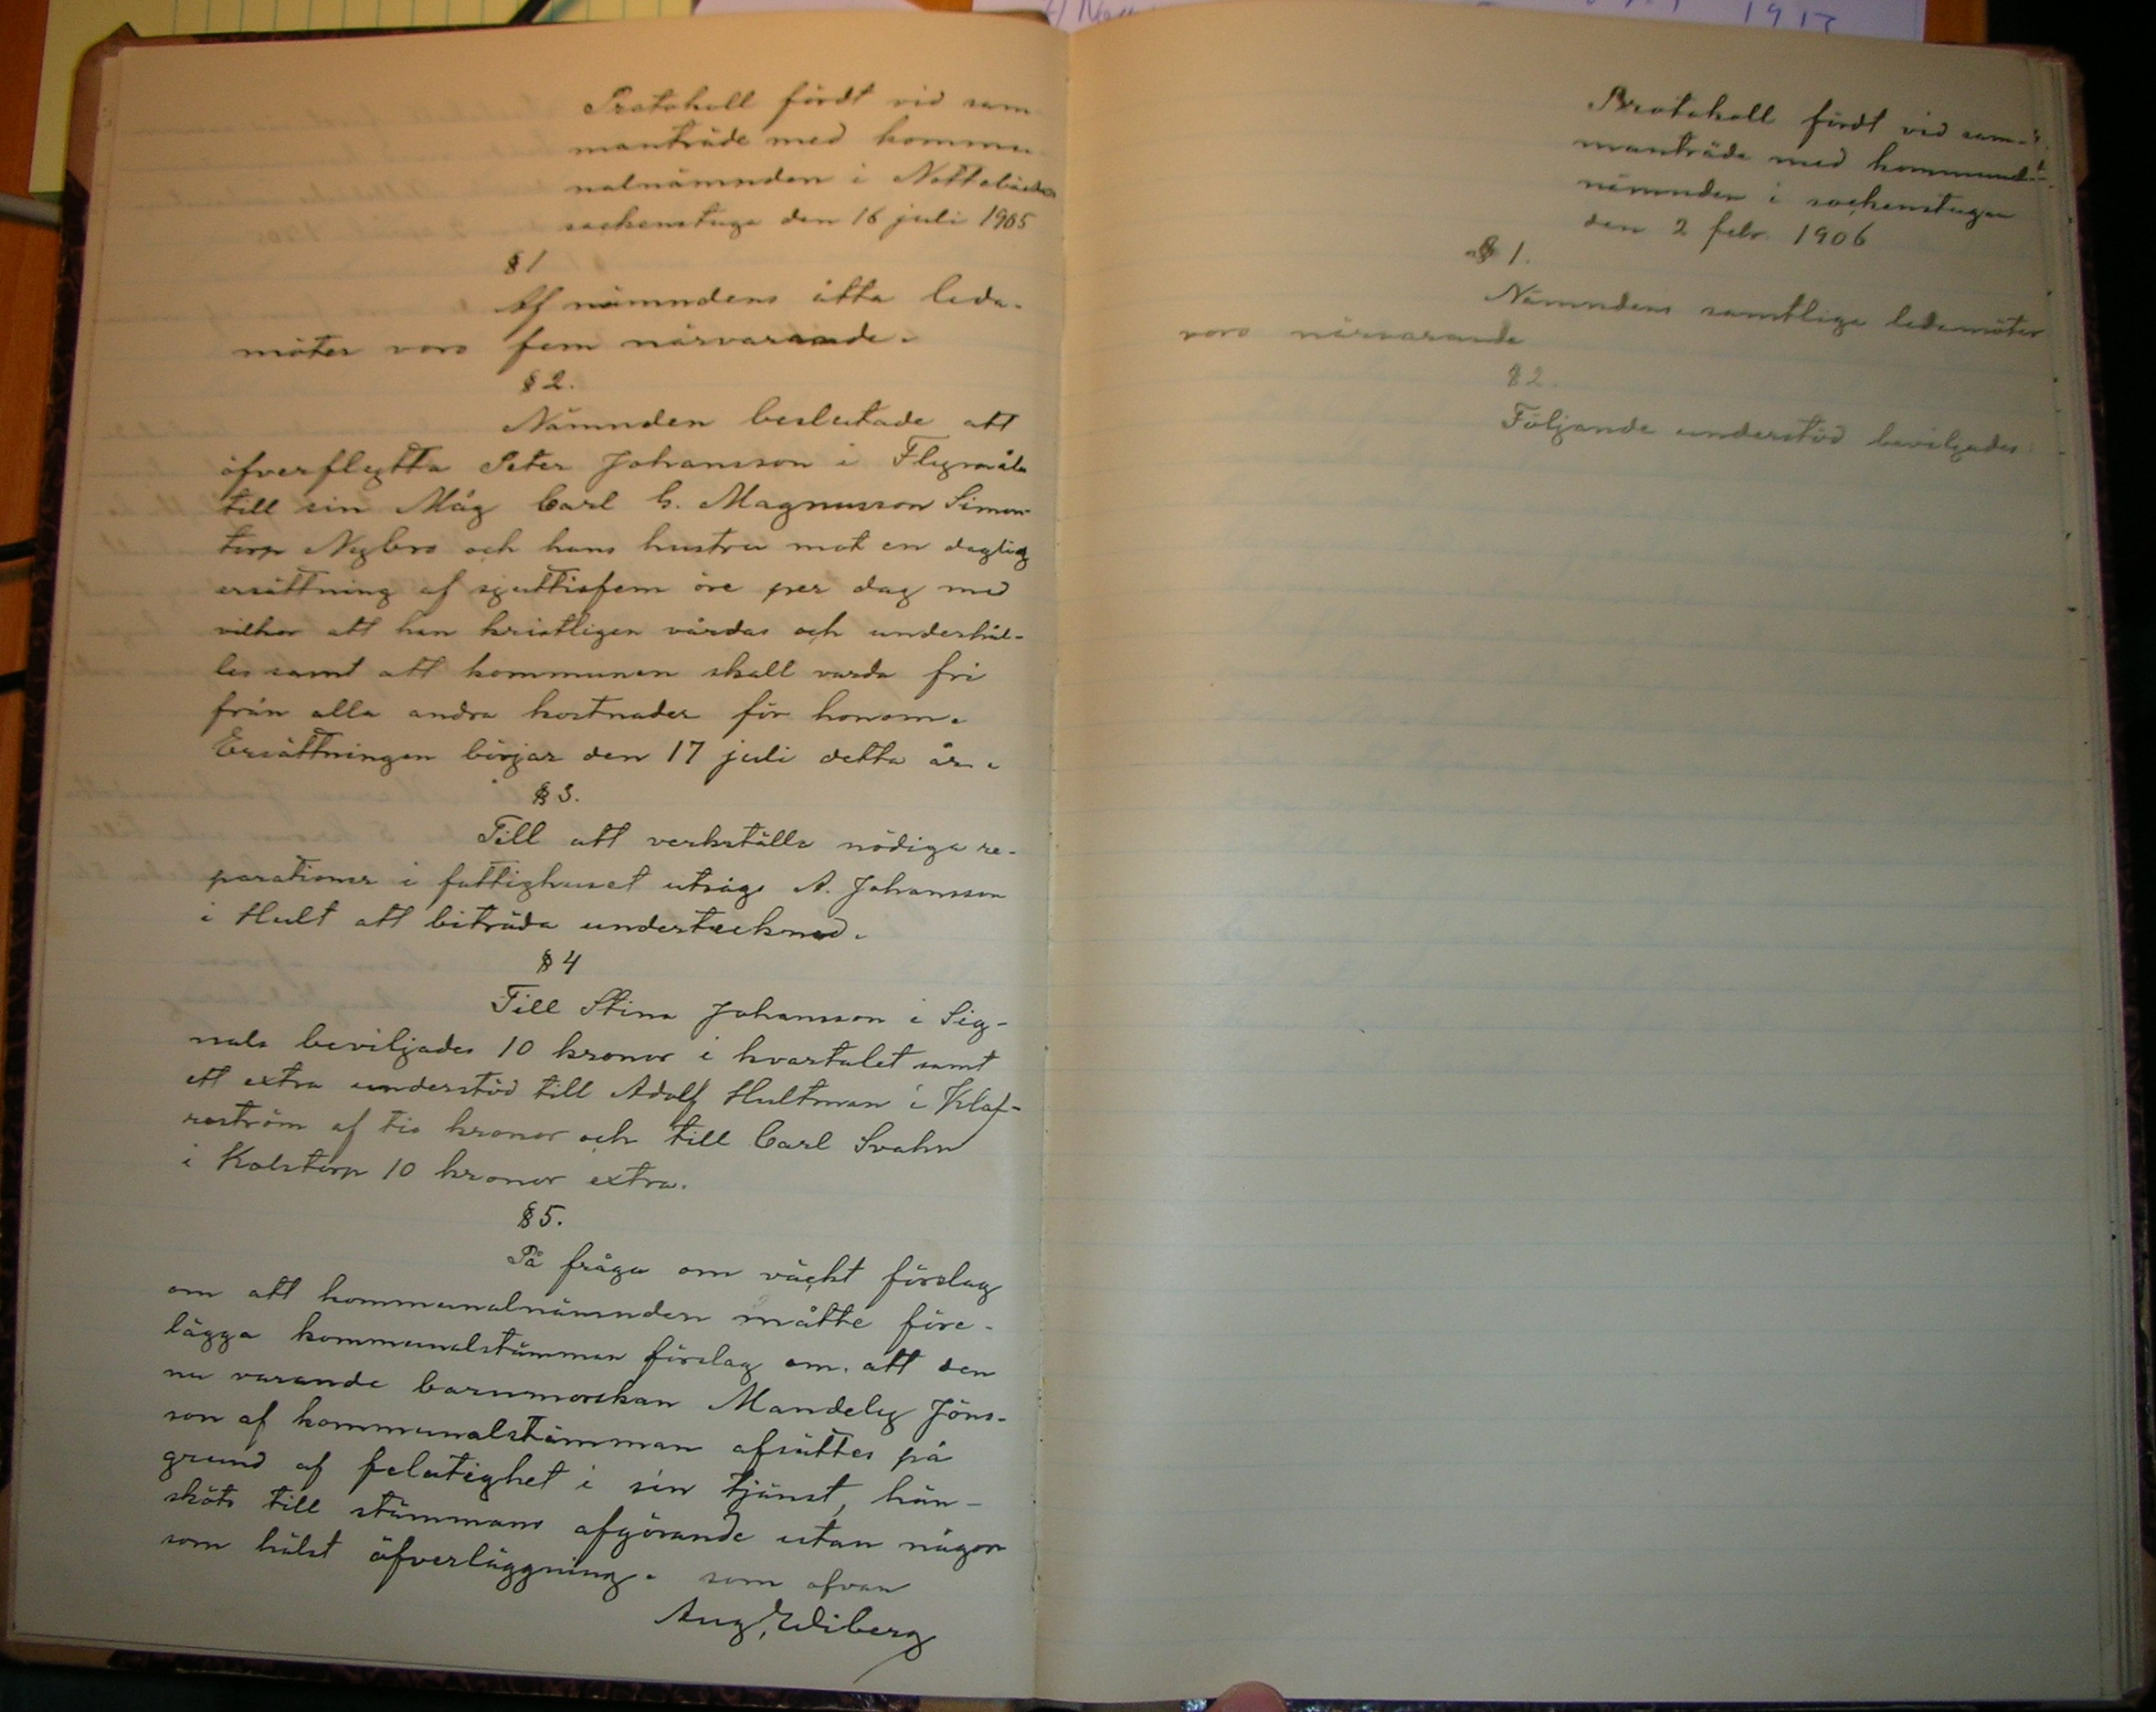 Protokoll fördt vid sam
manträde med kommu
nalnämnden i Nottebäcks
sockenstuga den 16 juli 1905
§ 1
Af nämndens åtta leda-
möter voro fem närvarande.
§ 2.
Nämnden beslutade att
öfverflytta Peter Johansson i Flygmåla
till sin Måg Carl G. Magnusson Simon-
torp Nybro och hans hustru mot en daglig
ersättning af sjuttiofem öre per dag med
vilkor att han kristligen vårdas och underhål-
les samt att kommunen skall varda fri
från alla andra kostnader för honom.
Ersättningen börjar den 17 juli detta år.
§ 3.
Till att verkställa nödiga re-
parationer i fattighuset utsågs A. Johansson
i Hult att biträda undertecknad.
§ 4
Till Stina Johansson i Sig-
nals beviljades 10 kronor i kvartalet samt
ett extra understöd till Adolf Hultman i Klaf-
reström af tio kronor och till Carl Svahn
i Kolstorp 10 kronor extra.
§ 5.
På fråga om väckt förslag
om att kommunalnämnden måtte före-
lägga kommunalstämman förslag om att den
nu varande barnmorskan Mandely Jöns-
son af kommunalstämman afsättes på
grund af felatighet i sin tjänst, hän-
sköts till stämmans afgörande utan någon
som hälst öfverläggning. som ofvan
Aug. Wiberg
Protokoll fördt vid sam-
manträde med kommunal-
nämnden i sockenstugan
den 2 febr. 1906
§ 1.
Nämndens samtliga ledamöter
voro närvarande
§ 2.
Följande understöd beviljades: